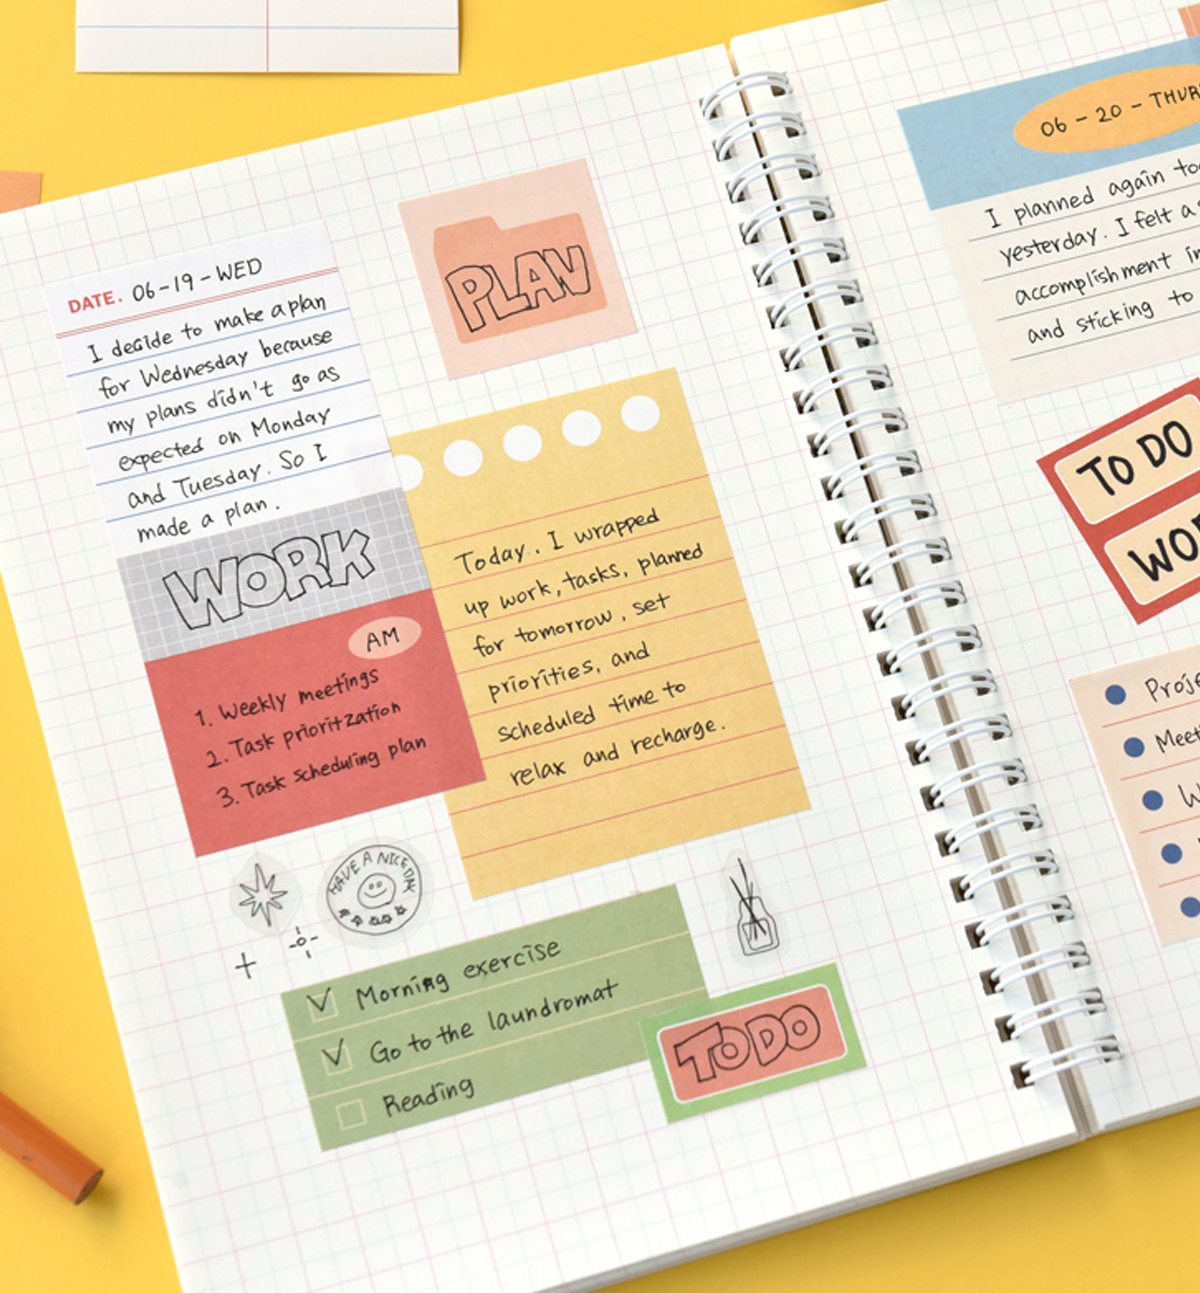 DATE. 06-19-WED
I decide to make a plan
for Wednesday because
my plans didn't go as
expected on Monday
and Tuesday. So I
made a plan.
PLAN
WORK
AM
1. Weekly meetings
2. Task prioritzation
3. Task scheduling plan
Today. I wrapped
up work, tasks, planned
for tomorrow, set
priorities, and
scheduled time to
relax and recharge.
HAVE A NICE DAY
Morning exercise
Go to the laundromat
Reading
TODO
06-20-THUR
I planned again
yesterday. I felt
accomplishment
and sticking to
TO DO